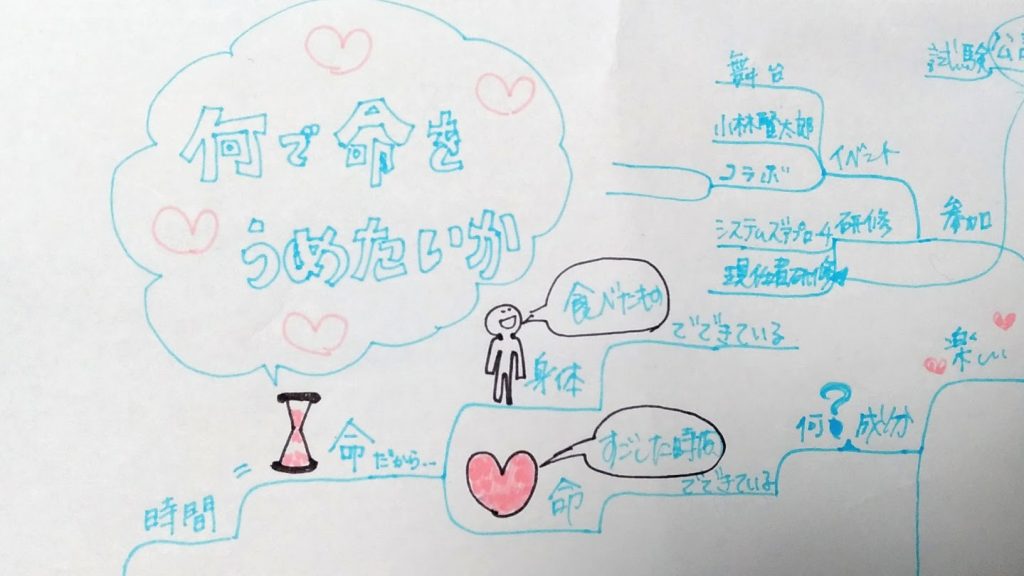 何で命を
うめたいか
舞台
小林賢太郎
コラボ
イベント
システムズアプローチ研修
現任者研修
参加
試験
食べたもの
身体
でできている
すごした時間
命
でできている
何?成分
楽しい
命だから…
=
時間